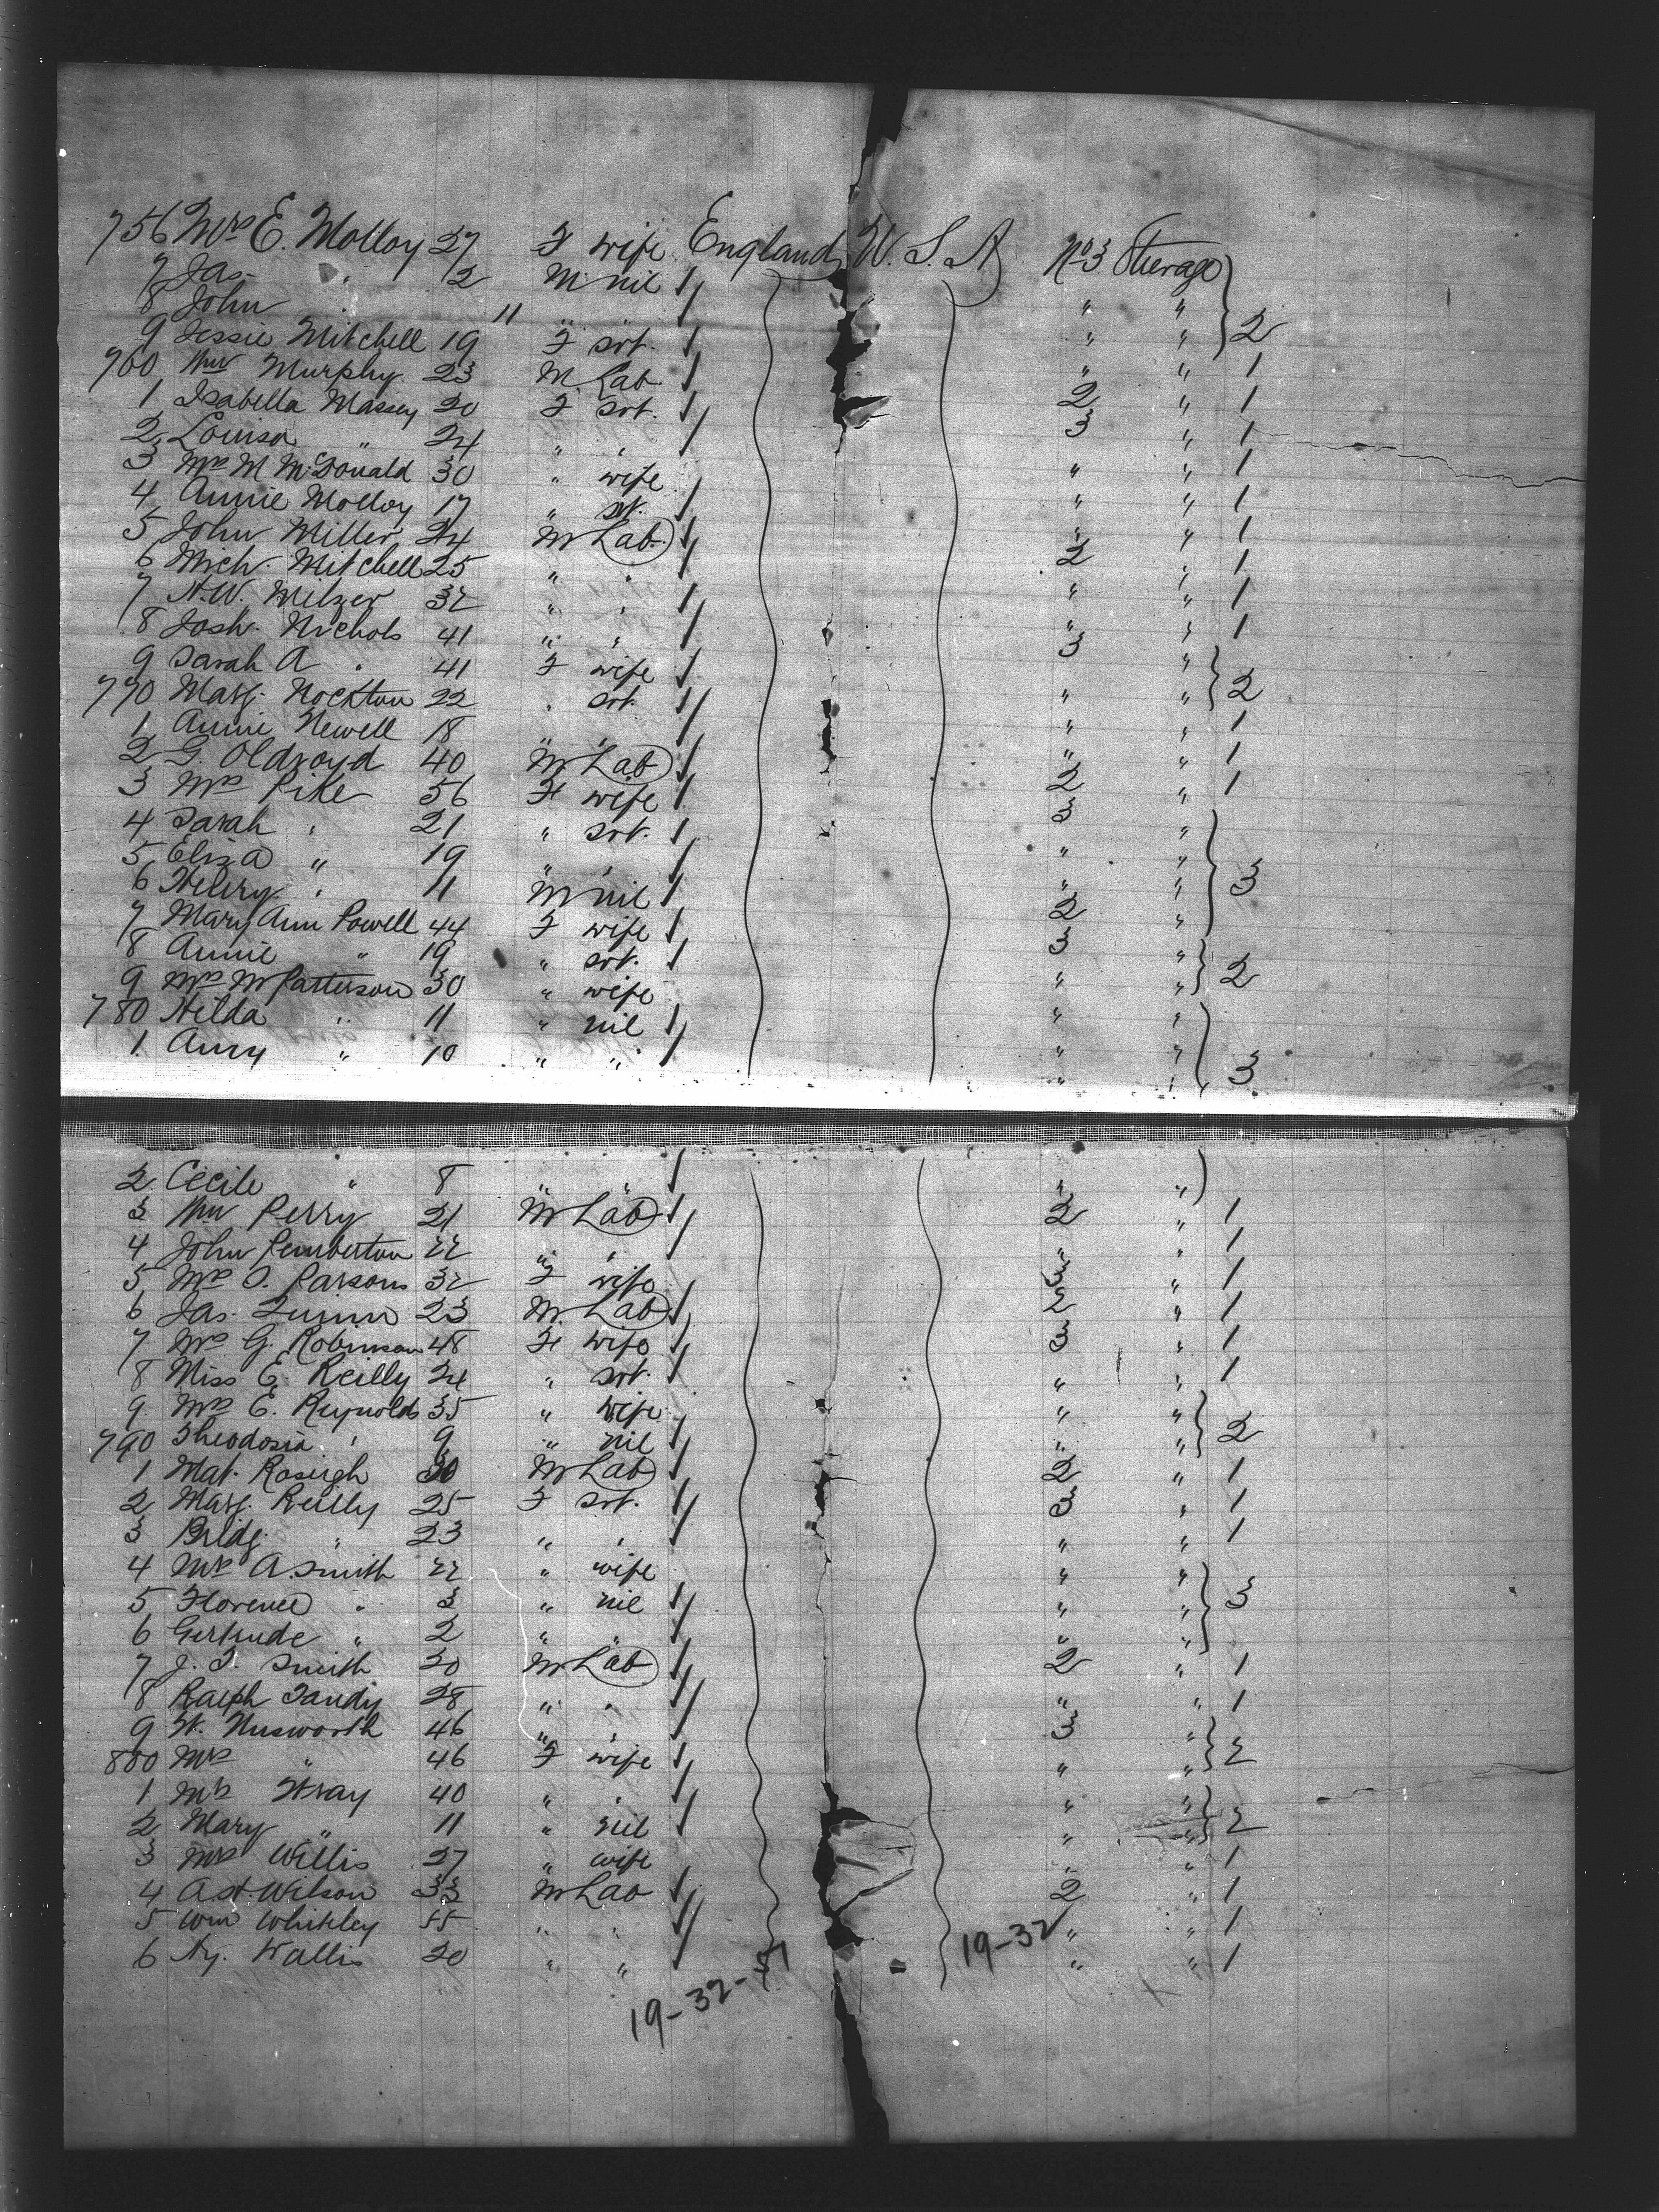 756 Mrs E. Molloy 27 F wife England U.S.A No 3 Sterage
7 Jas. " 2 M nil " "
8 John " 11 " " " " 2
9 Jessie Mitchell 19 F svt. " " 1
760 Wm Murphy 23 M Lab 2 " 1
1 Isabella Massey 20 F svt. 3 " 1
2 Louisa " 24 " " " " 1
3 Mrs M McDonald 30 " wife " " 1
4 Annie Molloy 17 " svt. " " 1
5 John Miller 24 M Lab. 2 " 1
6 Mich. Mitchell 25 " " " " 1
7 N.W. Milzer 32 " " " " 1
8 Josh. Nichols 41 " " 3 "
9 Sarah A " 41 F wife " " 2
770 Marg. Nockton 22 " svt. " " 1
1 Annie Newell 18 " " " " 1
2 G. Oldroyd 40 M Lab 2 " 1
3 Mrs Pike 56 F wife 3 "
4 Sarah " 21 " svt. " "
5 Eliza " 19 " " " " 3
6 Henry " 11 M nil 2 "
7 Mary Ann Powell 44 F wife 3 "
8 Annie " 19 " svt. " " 2
9 Mrs M Patterson 30 " wife " "
780 Hilda " 11 " nil " "
1 Amy " 10 " " " " 3
2 Cecile " 8 " " " "
3 Wm Perry 21 M Lab 2 " 1
4 John Pemberton 22 " " " " 1
5 Mrs O. Parsons 32 F wife 3 " 1
6 Jas. Quinn 23 M. Lab 2 " 1
7 Mrs G. Robinson 48 F wife 3 " 1
8 Miss E. Reilly 24 " svt. " " 1
9 Mrs E. Reynolds 35 " wife " "
790 Theodosia " 9 " nil " " 2
1 Mat. 30 M Lab 2 " 1
2 Marg. Reilly 25 F svt. 3 " 1
3 Bridg. " 23 " " " " 1
4 Mrs A. Smith 22 " wife " "
5 Florence " 3 " nil " " 3
6 Gertrude " 2 " " " "
7 J. T. Smith 30 M Lab 2 " 1
8 Ralph Tandy 28 " " " " 1
9 46 " " 3 "
800 Mrs " 46 F wife " " 2
1 Mrs Wray 40 " " " "
2 Mary " 11 " nil " " 2
3 Mrs Willis 27 " wife " " 1
4 A.H. Wilson 33 M Lab 2 " 1
5 Wm Whitley 55 " " " " 1
6 Hy. Wallis 20 " " " " 1
19-32-51 19-32